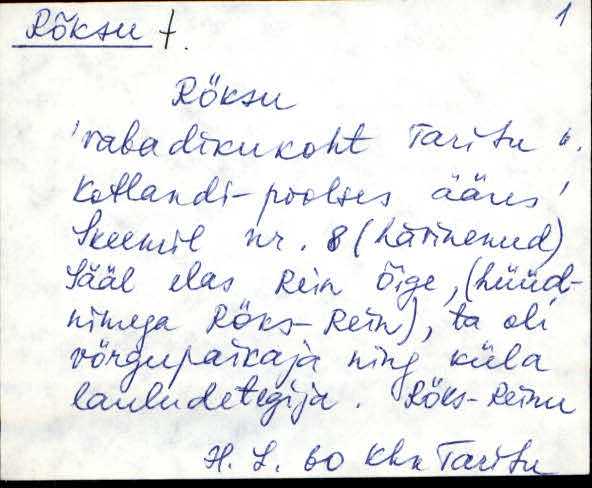 Rõksu t. 1
Röksu
'vabadikukoht Taritu k.
Kotlandi-poolses ääres'
Skeemil nr. 8 (hävinenud)
Sääl elas Rein Õige, (hüüd-
nimega Röks-Rein), ta oli
võrgupaikaja ning küla
lauludetegija. Röks-Reinu
H. L. 60 Khk Taritu